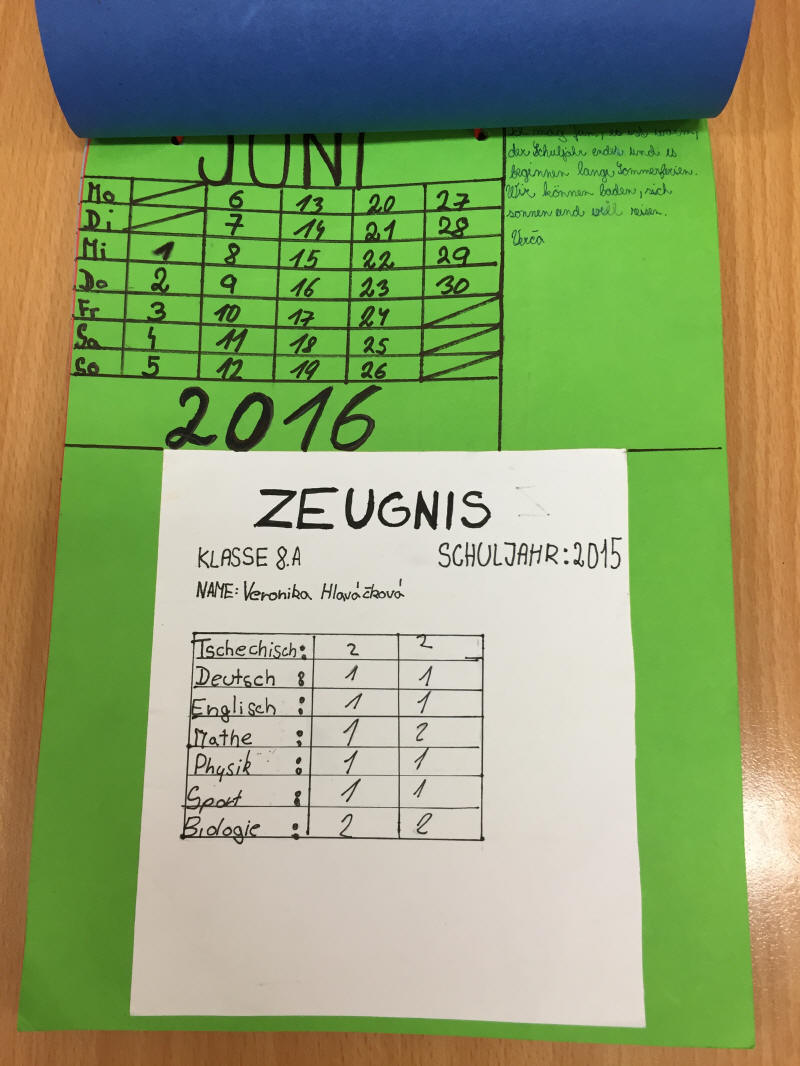 JUNI
Mo 6 13 20 27
Di 7 14 21 28
Mi 1 8 15 22 29
Do 2 9 16 23 30
Fr 3 10 17 24
Sa 4 11 18 25
So 5 12 19 26
2016
ich mag Juni, es ist warm,
der Schuljahr endet und es
beginnen lange Sommerferien.
Wir können baden, sich
sonnen und viel reisen.
Verča
ZEUGNIS
KLASSE 8.A SCHULJAHR: 2015
NAME: Veronika Hlaváčková
Tschechisch: 2 2
Deutsch : 1 1
Englisch : 1 1
Mathe : 1 2
Physik : 1 1
Sport : 1 1
Biologie : 2 2